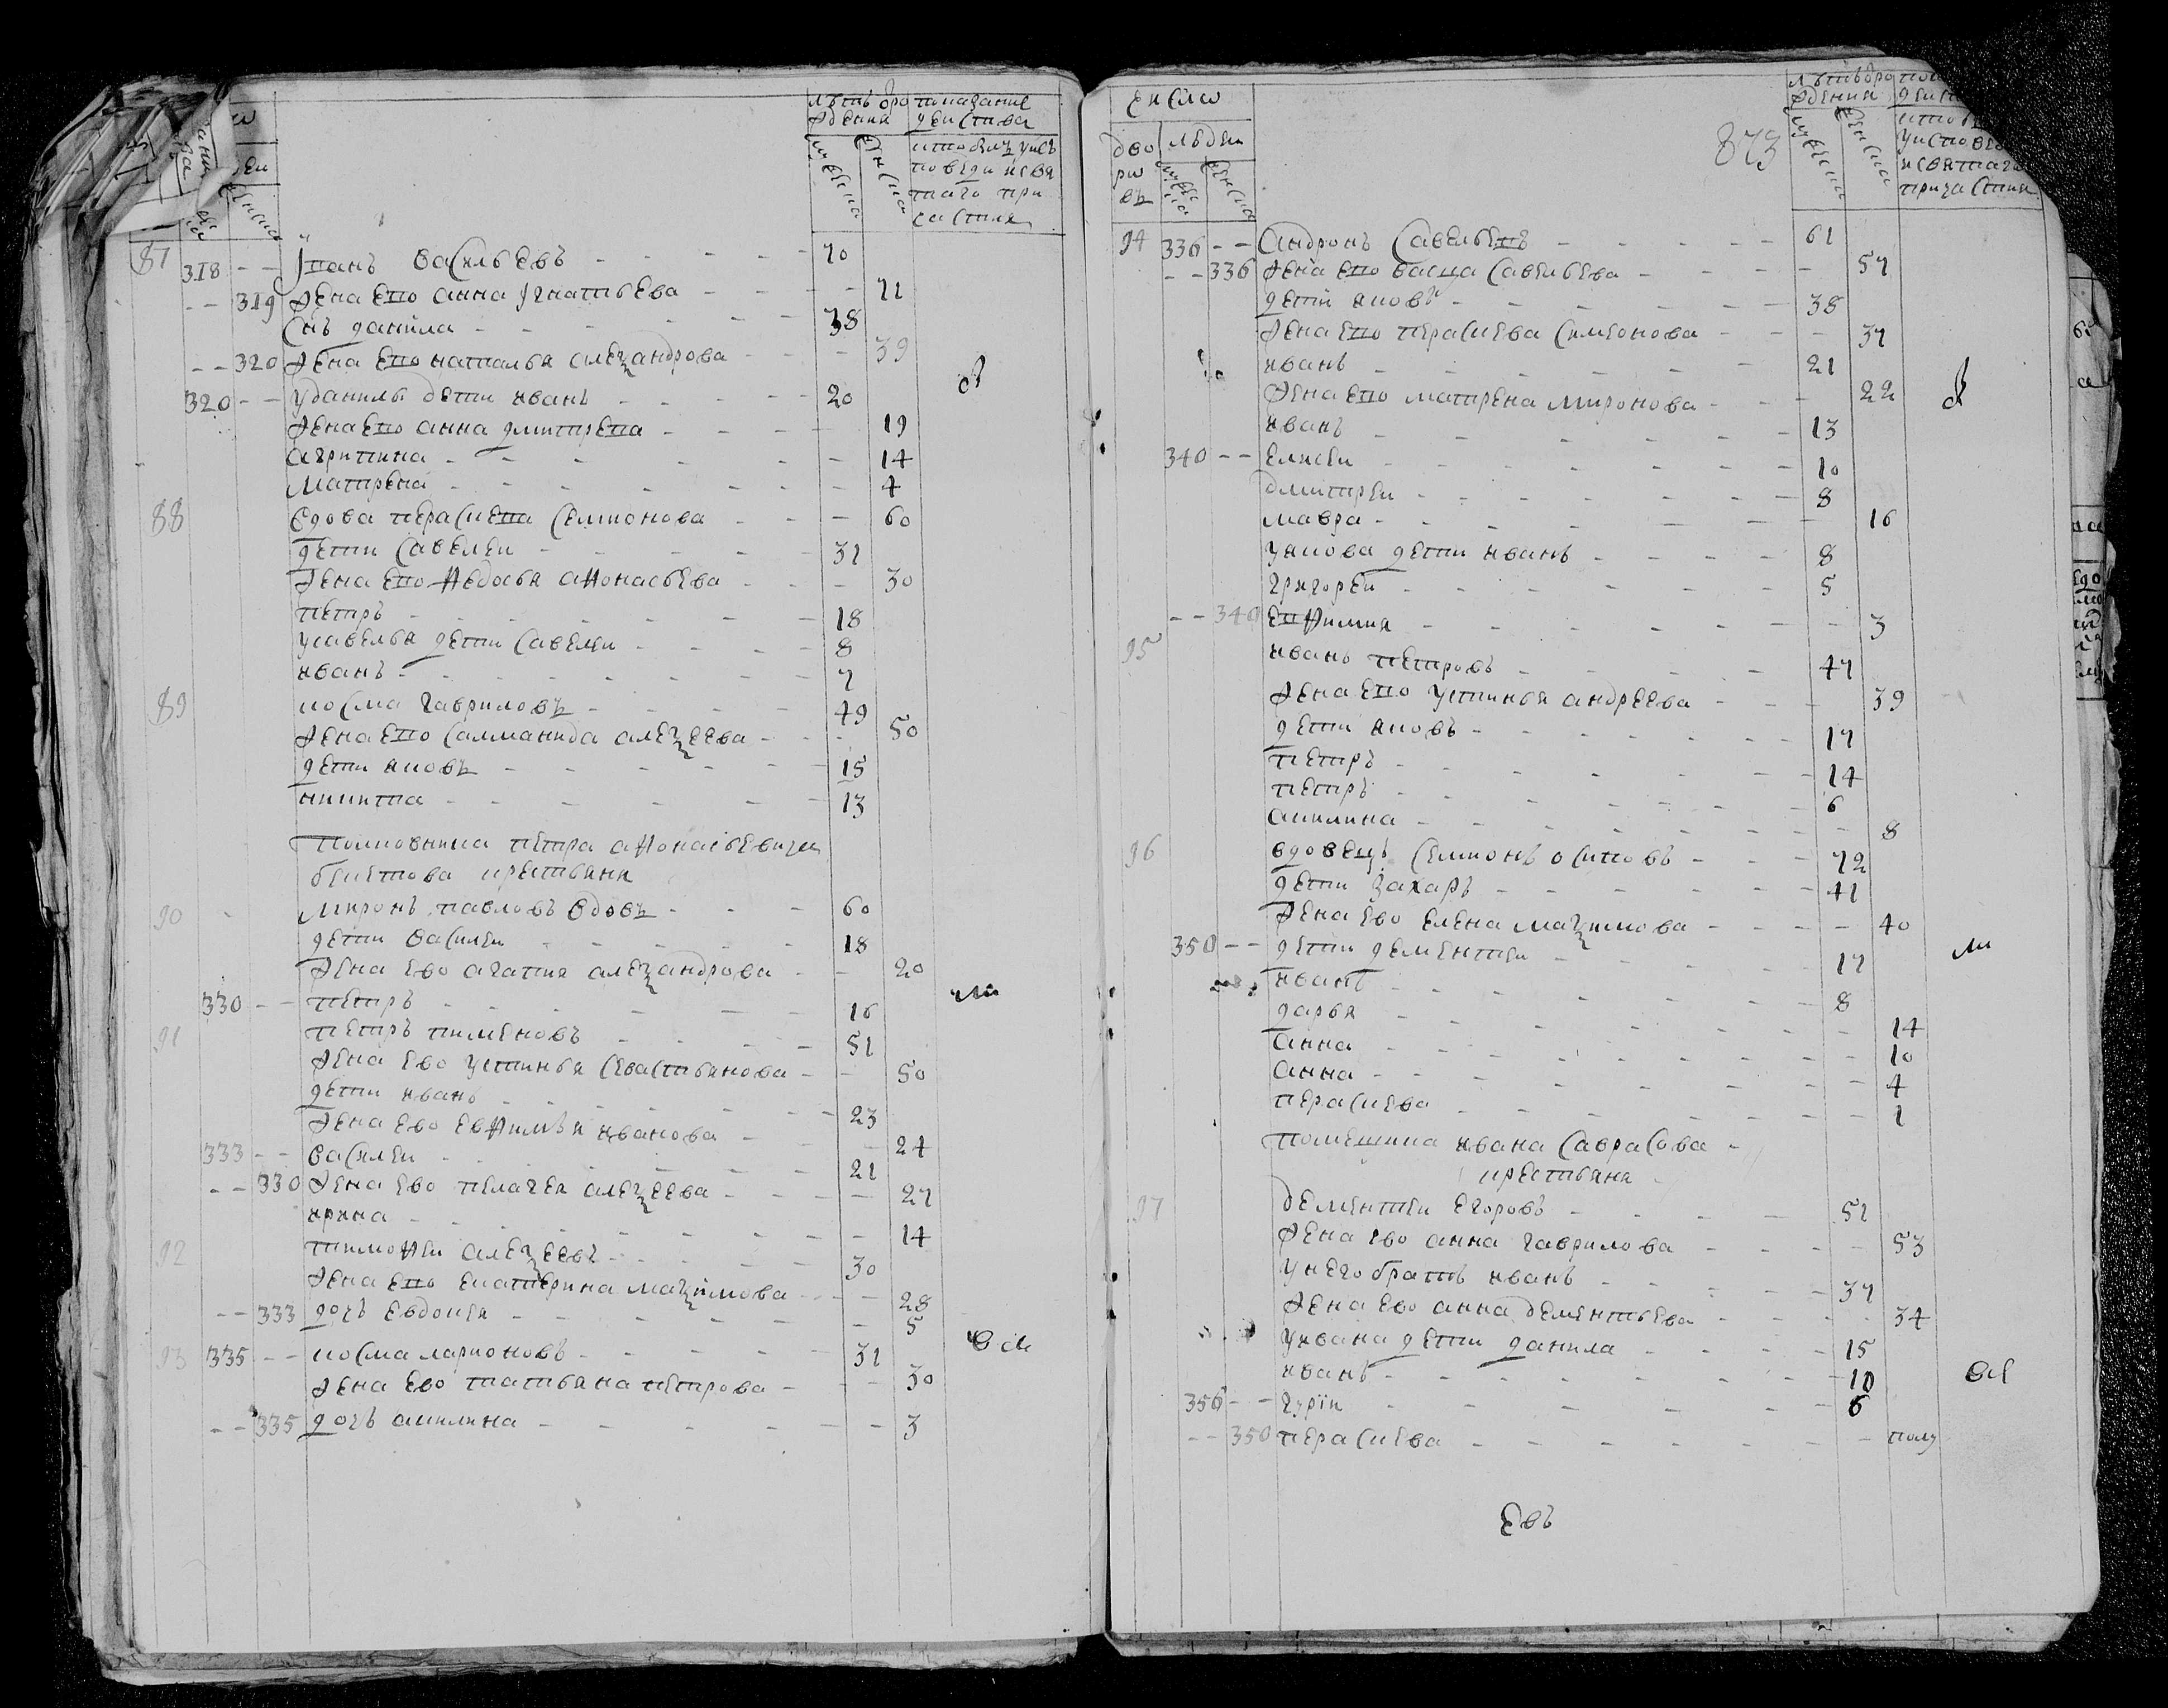 лѣтъ ѿро показание
жденiя действа
мужеска женска кто былъ у исъ
поведи и свя
таго при
частия
87 318 -- Иванъ Васильевъ 70
-- 319 жена ево анна игнатьева 71
снъ данiла 38
-- 320 жена ево наталья алеѯандрова 39
320 -- у данилы дети иванъ 20
жена ево анна дмитрева 19
агрипина 14
матрена 4
88 вдова параскева семионова 60
дети савелеи 31
жена ево ѳедосья аѳонасьева 30
петръ 18
у савелья дети савелеи 8
иванъ 7
89 косма гавриловъ 49
жена ево саламанида алеѯеева 50
дети яковъ 15
никита 13
полковника петра аѳонасьевича
бекетова крестьяня
90 миронъ павловъ вдовъ 60
дети василеи 18
жена ево агапия алеѯандрова 20
330 -- петръ 16
91 петръ пименовъ 51
жена ево устинья севастьянова 50
дети иванъ 23
жена ево евѳимья иванова 24
333 -- василеи 21
-- 330 жена ево пелагея алеѯеева 27
ирина 14
92 тимоѳеи алеѯеевъ 30
жена ево екатерина маѯимова 28
-- 333 дочь евдокея 5
93 335 -- косма ларионовъ 31
жена ево татьяна петрова 30
-- 335 дочь акилина 3
число
дво ровъ людеи
873
94 336 -- Андронъ Савельевъ 61
-- 336 жена ево васса савельева 57
дети яковъ 38
жена ево параскева симеонова 37
иванъ 21
жена ево матрена миронова 22
иванъ 13
340 -- елисеи 10
дмитреи 8
мавра 16
у якова дети иванъ 8
григореи 5
-- 340 евѳимия 3
95 иванъ петровъ 47
жена ево устинья андреева 39
дети яковъ 17
петръ 14
петръ 6
акилина 8
96 вдовецъ семионъ осиповъ 72
дети захаръ 41
жена ево елена маѯимова 40
350 -- дети дементеи 17
иванъ 8
дарья 14
анна 10
анна 4
параскева 1
помещика ивана саврасова
крестьяня
97 дементеи егоровъ 51
жена ево анна гаврилова 53
у него братъ иванъ 37
жена ево анна дементьева 34
у ивана дети данила 15
иванъ 10
356 -- гурiи 6
-- 350 параскева полу
Евъ